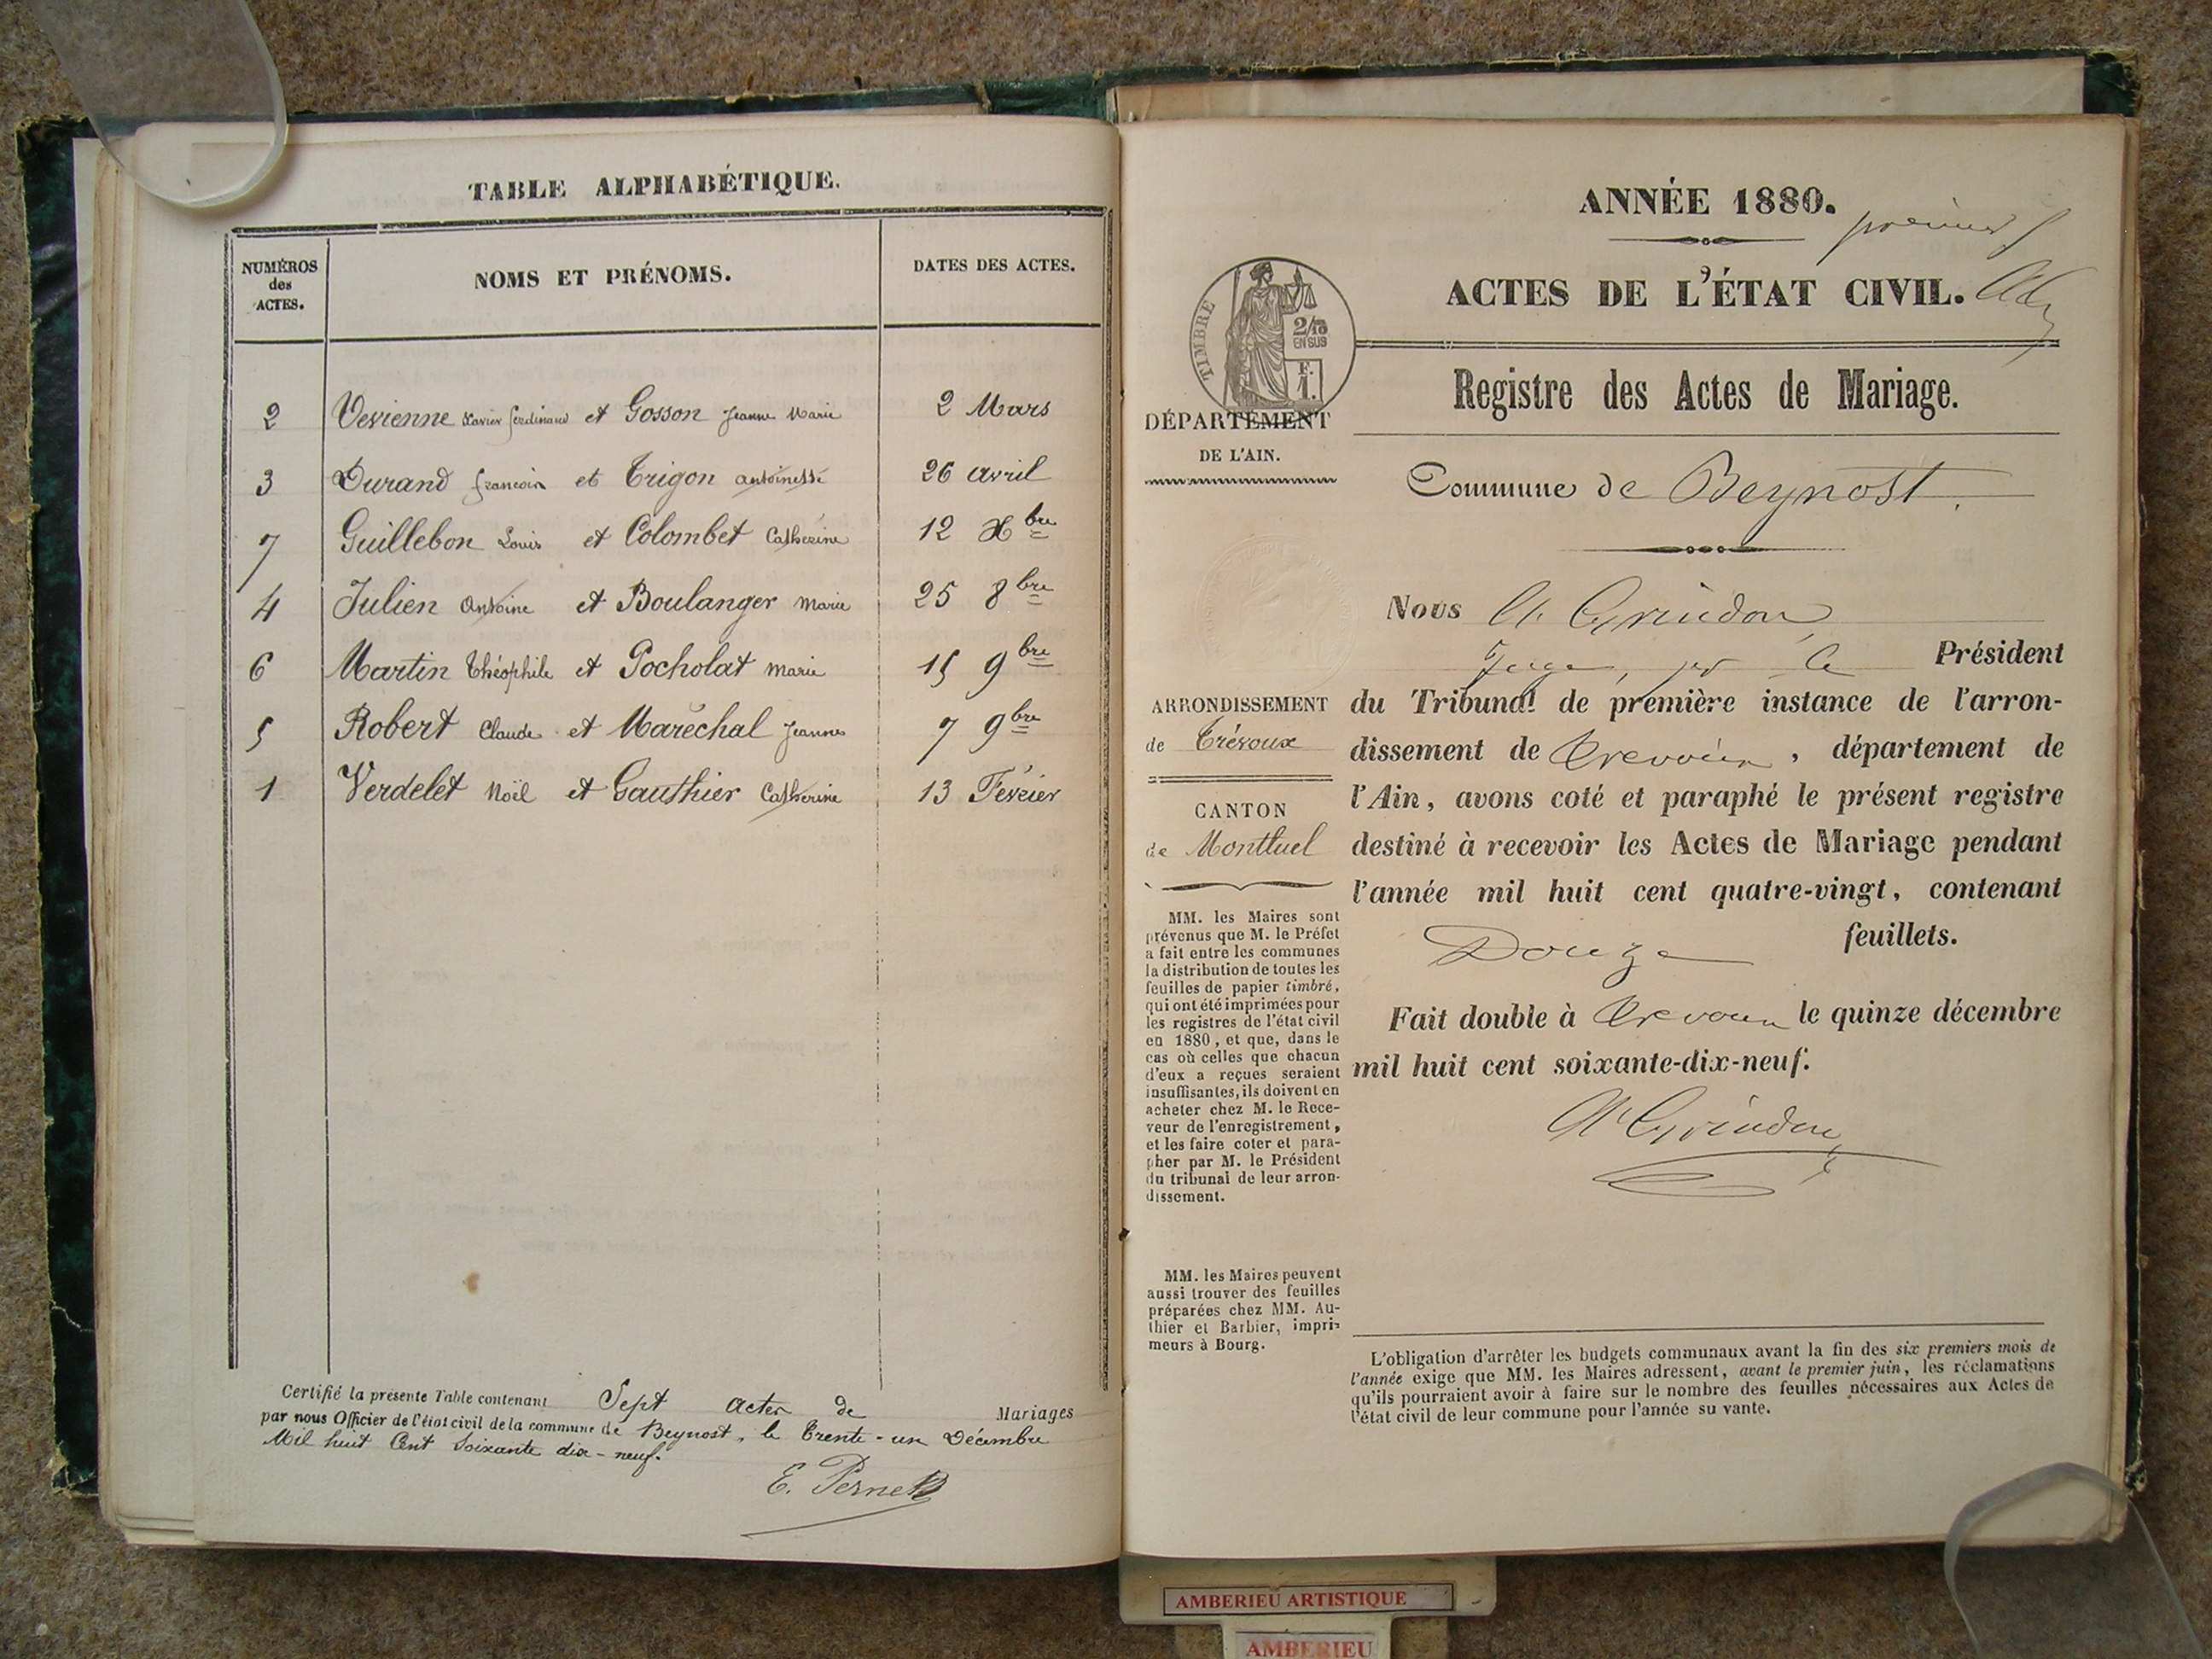 TABLE ALPHABÉTIQUE.
NUMÉROS des ACTES.
NOMS ET PRÉNOMS.
DATES DES ACTES.
2 Devienne Xavier ferdinand et Gosson Jeanne Marie 2 Mars
3 Durand francois et Trigon antoinette 26 avril
7 Guillebon Louis et Colombet Catherine 12 Xbre
4 Julien Antoine et Boulanger Marie 25 8bre
6 Martin Théophile et Pocholat Marie 15 9bre
5 Robert Claude et Maréchal Jeanne 7 9bre
1 Verdelet Noël et Gauthier Catherine 13 Février
Certifié la présente Table contenant Sept actes de Mariages
par nous Officier de l'état civil de la commune de Beynost, le trente-un Décembre
Mil huit Cent Soixante dix-neuf.
E. Pernet
ANNÉE 1880.
premier f
ACTES DE L'ÉTAT CIVIL.
TIMBRE
2/10
EN SUS
F.
1.
Registre des Actes de Mariage.
DÉPARTEMENT
DE L'AIN.
Commune de Beynost.
Nous A. Grindon
Juge, pr le Président
du Tribunal de première instance de l'arron-
dissement de Trevoux, département de
l'Ain, avons coté et paraphé le présent registre
destiné à recevoir les Actes de Mariage pendant
l'année mil huit cent quatre-vingt, contenant
Douze feuillets.
Fait double à Trevoux le quinze décembre
mil huit cent soixante-dix-neuf.
A Grindon
ARRONDISSEMENT
de Trévoux
CANTON
de Montluel
MM. les Maires sont
prévenus que M. le Préfet
a fait entre les communes
la distribution de toutes les
feuilles de papier timbré,
qui ont été imprimées pour
les registres de l'état civil
en 1880, et que, dans le
cas où celles que chacun
d'eux a reçues seraient
insuffisantes, ils doivent en
acheter chez M. le Rece-
veur de l'enregistrement,
et les faire coter et para-
pher par M. le Président
du tribunal de leur arron-
dissement.
MM. les Maires peuvent
aussi trouver des feuilles
préparées chez MM. Au-
thier et Barbier, impri-
meurs à Bourg.
L'obligation d'arrêter les budgets communaux avant la fin des six premiers mois de
l'année exige que MM. les Maires adressent, avant le premier juin, les réclamations
qu'ils pourraient avoir à faire sur le nombre des feuilles nécessaires aux Actes de
l'état civil de leur commune pour l'année su vante.
AMBERIEU ARTISTIQUE
AMBERIEU